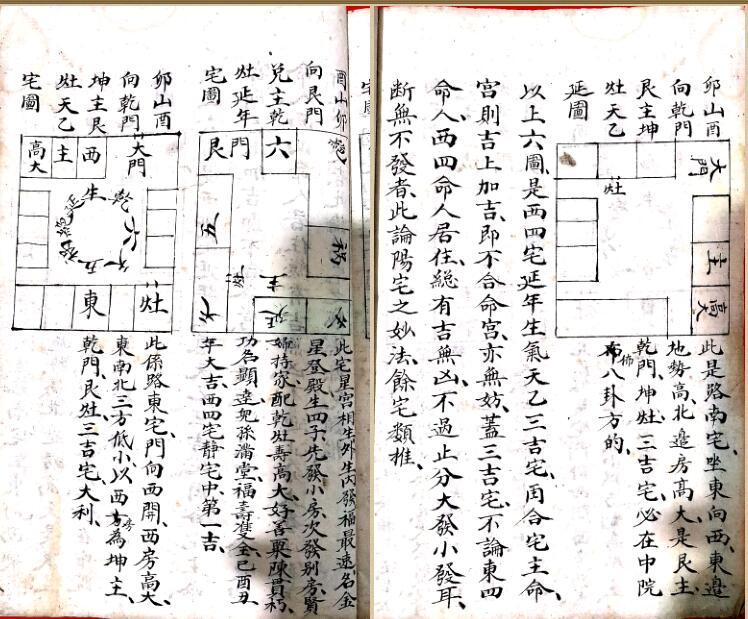 卯山酉
向乾門
艮主坤
灶天乙
延圖
大門
灶
主
高大
此是路南宅、坐東向西、東邊
地勢高、北邊房高大、是艮主、
乾門、坤灶、三吉宅、必在中院
佈八卦方的、
以上六圖、是西四宅延年生氣天乙三吉宅、再合宅主命
宮則吉上加吉、即不合命宮、亦無妨、蓋三吉宅、不論東四
命人、西四命人居住、總有吉無凶、不過止分大發小發耳、
断無不發者、此論陽宅之妙法、餘宅類推、
酉山卯
向艮門
兌主乾
灶延年
宅圖
六
門艮
五
主
延
此宅星宮相生、外生內發福最速、名金
星登殿、生四子、先發小房、次發別房、賢
婦持家、配乾灶、壽高大、好善、粟陳貫朽、
功名顯達、兒孫滿堂、福壽雙全、巳酉丑
年大吉、西四宅靜宅中第一吉、
卯山酉
向乾門
坤主艮
灶天乙
宅圖
大門
西
主
高大
生
六
五
灶
東
此係路東宅、門向西開、西房高大、
東南北三方低小、以西房為坤主、
乾門、艮灶、三吉宅、大利、